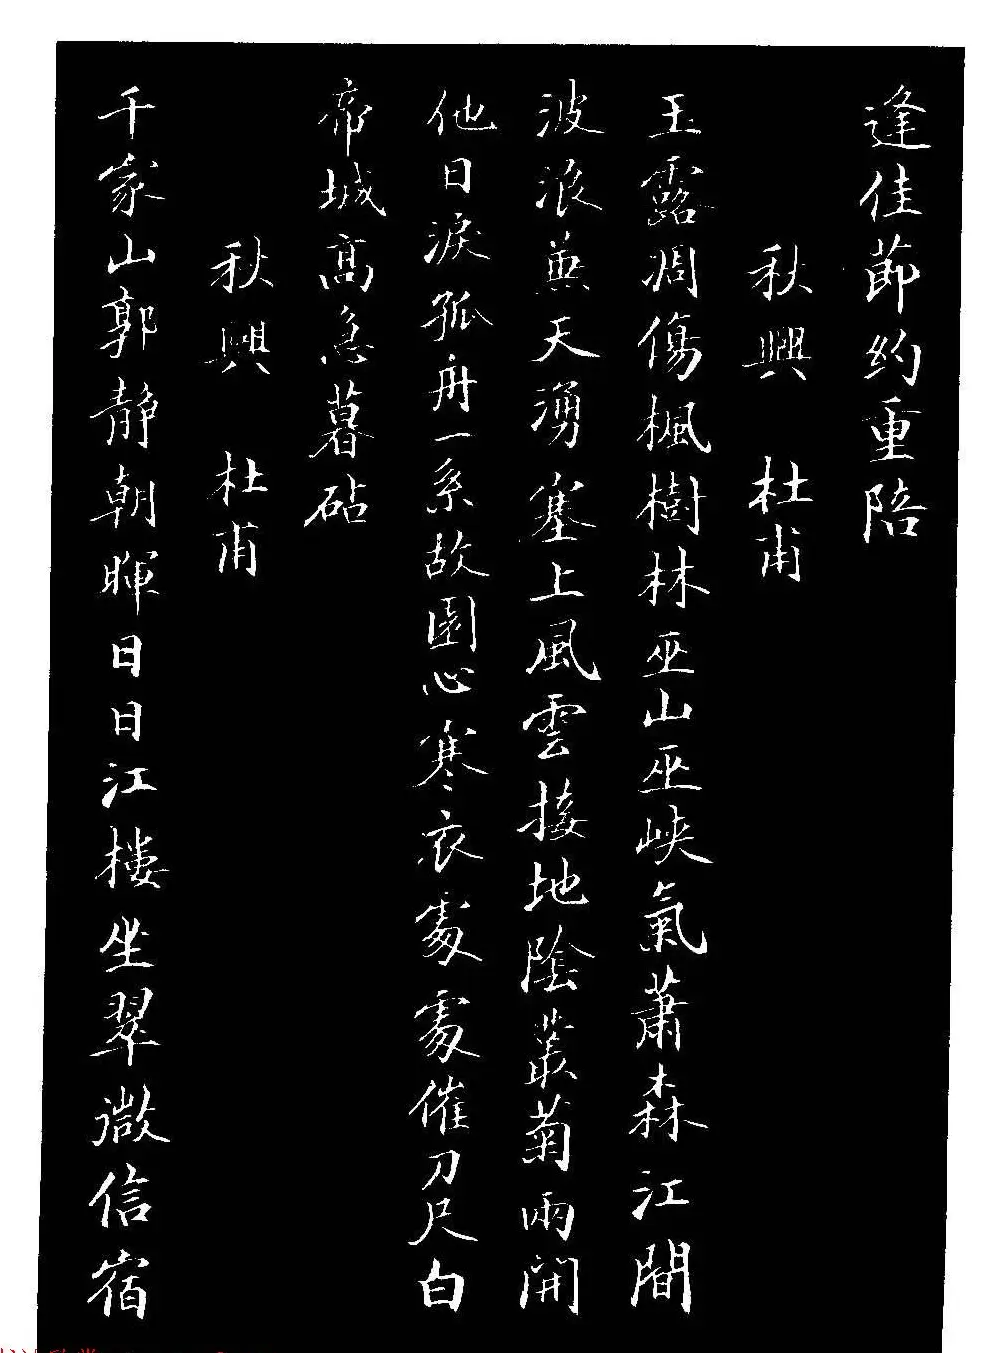 逢佳節約重陪
秋興 杜甫
玉露凋傷楓樹林巫山巫峽氣蕭森江間
波浪兼天湧塞上風雲接地陰叢菊兩開
他日淚孤舟一系故園心寒衣處處催刀尺白
帝城高急暮砧
秋興 杜甫
千家山郭靜朝暉日日江樓坐翠微信宿